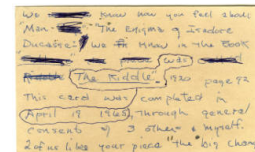 We know how you feel about
"Man- "The Enigma of Isadore
Ducasse". We know in the book
was
"The Riddle" 1920 page 92
This card was completed in
April 19 1965, through general
consent of 3 others & myself.
2 of us like your piece "the big Chang